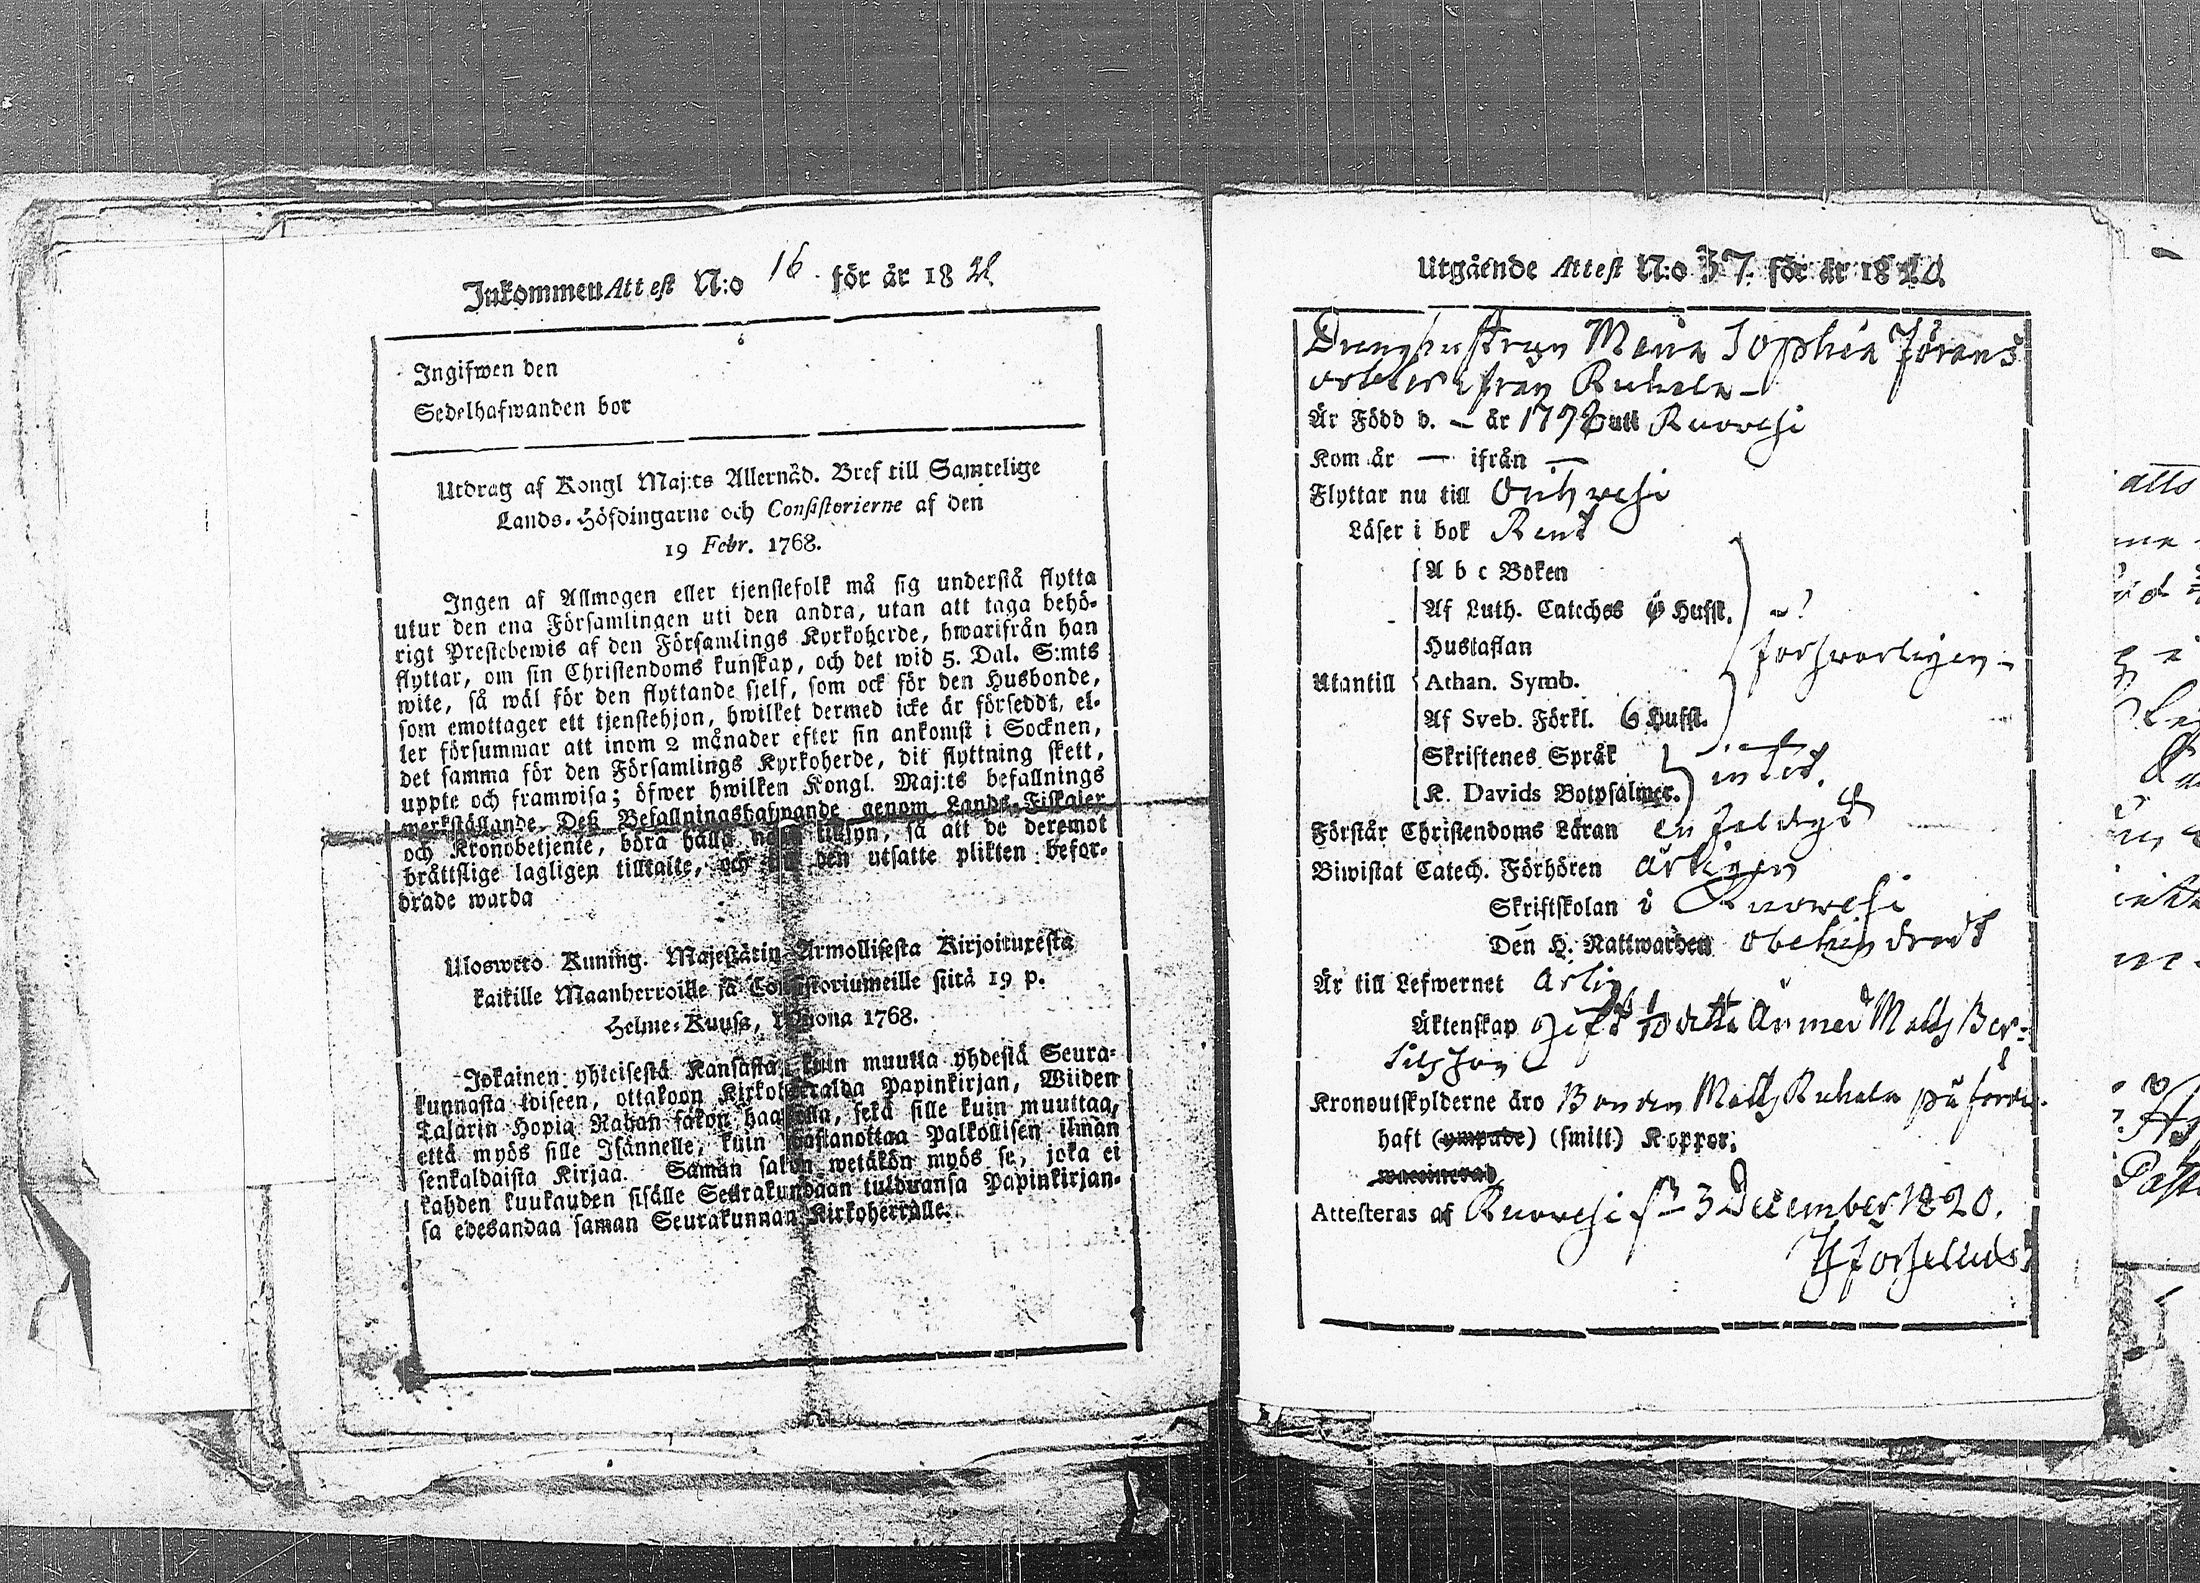 Inkommen Attest N:o 16. för år 1821
Ingifwen den
Sedelhafwanden bor
Utdrag af Kongl Maj:ts Allernåd. Bref till Samtelige
Lands-Höfdingarne och Consistorierne af den
19 Febr. 1768.
Ingen af Allmogen eller tjenstefolk må sig understå flytta
utur den ena Församlingen uti den andra, utan att taga behö-
rigt Prestebewis af den Församlings Kyrkoherde, hwarifrån han
flyttar, om sin Christendoms kunskap, och det wid 5. Dal. S:mts
wite, så wäl för den flyttande sjelf, som ock för den Husbonde,
som emottager ett tjenstehjon, hwilket dermed icke är förseddt, el-
ler försummar att inom 2 månader efter sin ankomst i Socknen,
det samma för den Församlings Kyrkoherde, dit flyttning skett,
uppte och framwisa; öfwer hwilken Kongl. Maj:ts befallnings
werkställande, Deß Befallningshafwande genom Lands-Fiskaler
och Kronobetjente, böra hålla noga tillsyn, så att de deremot
bråttslige lagligen tilltalte, och till den utsatte plikten befor-
drade warda
Uloswето Kuning. Majestätin Armollisesta Kirjoituxesta
kaikille Maanherroille ja Consistoriumeille siitä 19 p.
Helme-Kuusa, Wuona 1768.
Jokainen yhteisestä Kansasta, kuin muutta yhdestä Seura-
kunnasta toiseen, ottakoon Kirkoherralda Papinkirjan, Wiiden
Talarin Hopia Rahan sakon haastolla, sekä sille kuin muuttaa,
että myös sille Isännelle, kuin wastanottaa Palkollisen ilman
senkaldaista Kirjaa. Saman sakon wetäkön myös se, joka ei
kahden kuukauden sisälle Seurakundaan tulduansa Papinkirjan-
sa edesandaa saman Seurakunnan Kirkoherralle.
Utgående Attest N:o 57. för år 1820
Drenghustrun Maria Sophia Jörans
dotter ifrån Ruhala
Är Född d. — år 179 uti Ruovesi
Kom år — ifrån —
Flyttar nu till Orihvesi
Läser i bok Rent
A b c Boken
Af Luth. Cateches 6 Hufst.
Hustaflan
försvarligen
Utantill Athan. Symb.
Af Sveb. Förkl. 6 Hufst.
Skriftenes Språk
K. Davids Botpsalmer. intet.
Förstår Christendoms Läran enfaldigt
Biwistat Catech. Förhören årligen
Skriftskolan i Ruowesi
Den H. Nattwarden obehindradt
Är till Lefwernet ärlig
Äktenskap gift 1/10 detta År med Matts Ber-
tilsson
Kronoutskylderne äro Bonden Matts Ruhala påförde.
haft (ympade) (smitt) Koppor;
waccinerad
Attesteras af Ruovesi 3 December 1820.
H Forselius